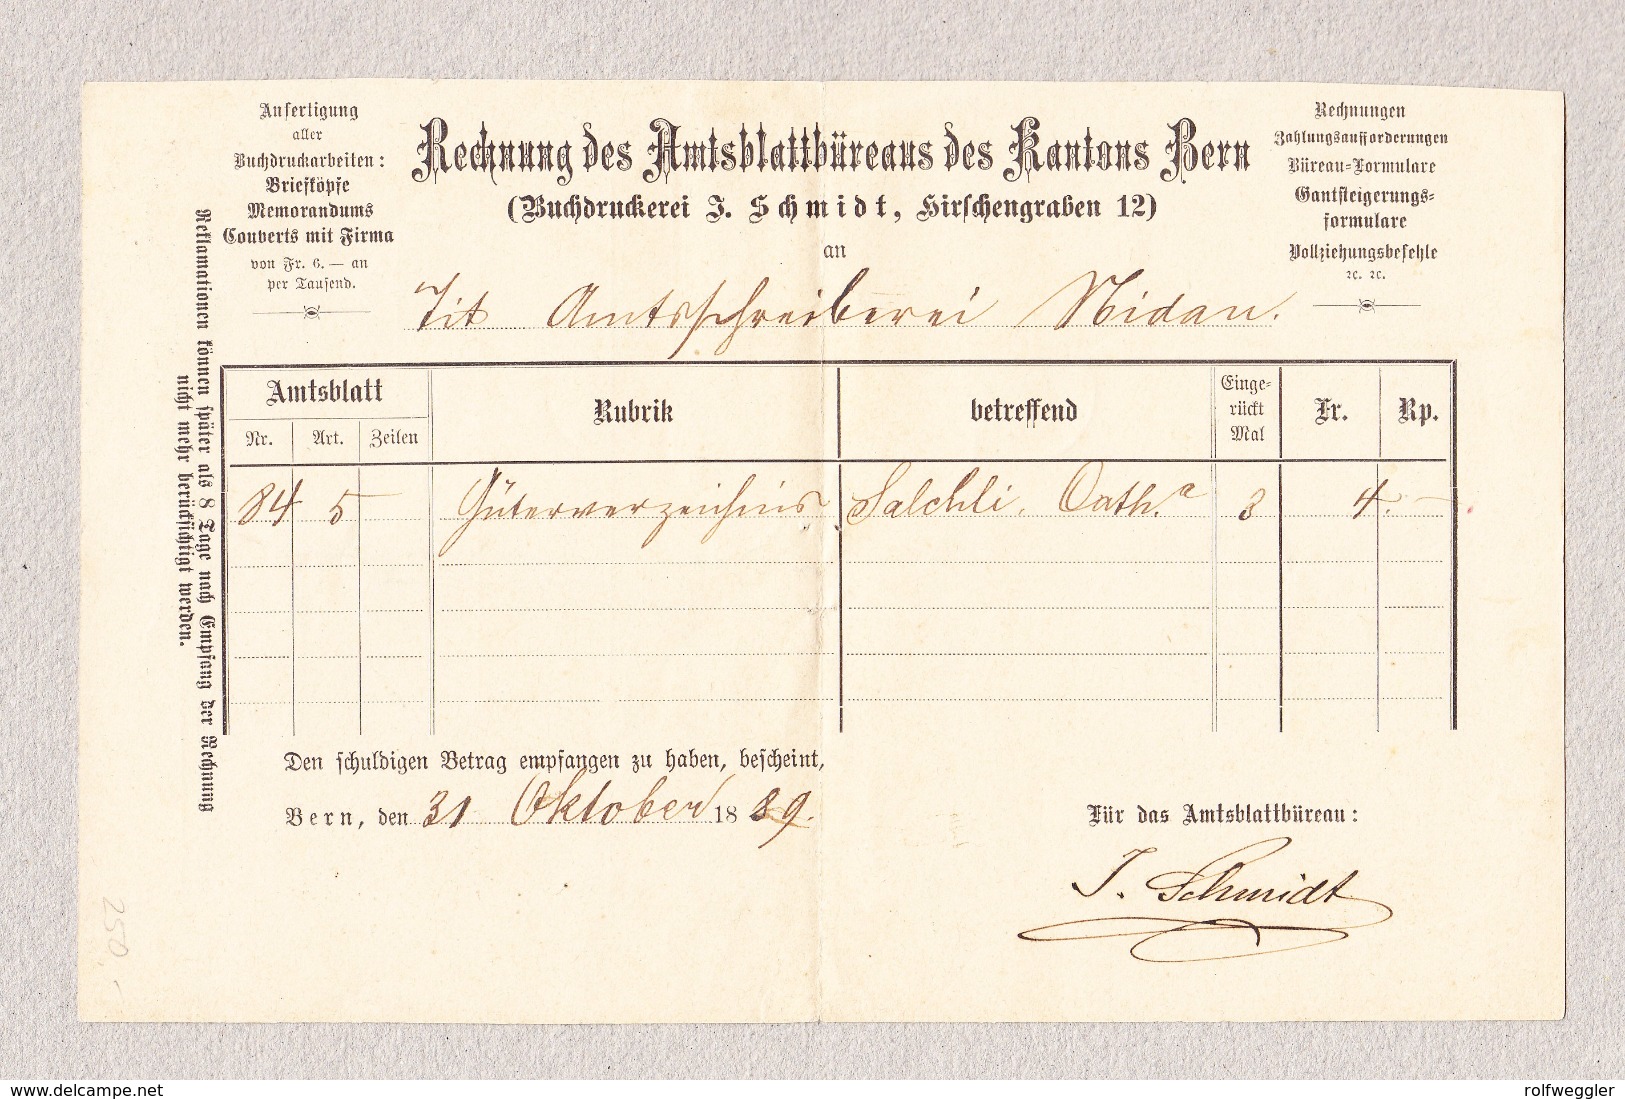 Anfertigung
aller
Buchdruckarbeiten:
Briefköpfe
Memorandums
Couverts mit Firma
von Fr. 6. — an
per Tausend.
Rechnung des Amtsblattbüreaus des Kantons Bern
(Buchdruckerei J. Schmidt, Hirschengraben 12)
an
Tit Amtsschreiberei Nidau.
Rechnungen
Zahlungsaufforderungen
Büreau-Formulare
Gantsteigerungs-
formulare
Vollziehungsbefehle
ꝛc. ꝛc.
Reklamationen können später als 8 Tage nach Empfang der Rechnung
nicht mehr berücksichtigt werden.
Amtsblatt Rubrik betreffend Einge-
rückt
Mal Fr. Rp.
Nr. Art. Zeilen
84 5 Güterverzeichnis Salchli. Cath.a 3 4. —
Den schuldigen Betrag empfangen zu haben, bescheint,
Bern, den 31 Oktober 1889.
Für das Amtsblattbüreau:
J. Schmidt
250.-
www.delcampe.net
rolfweggler